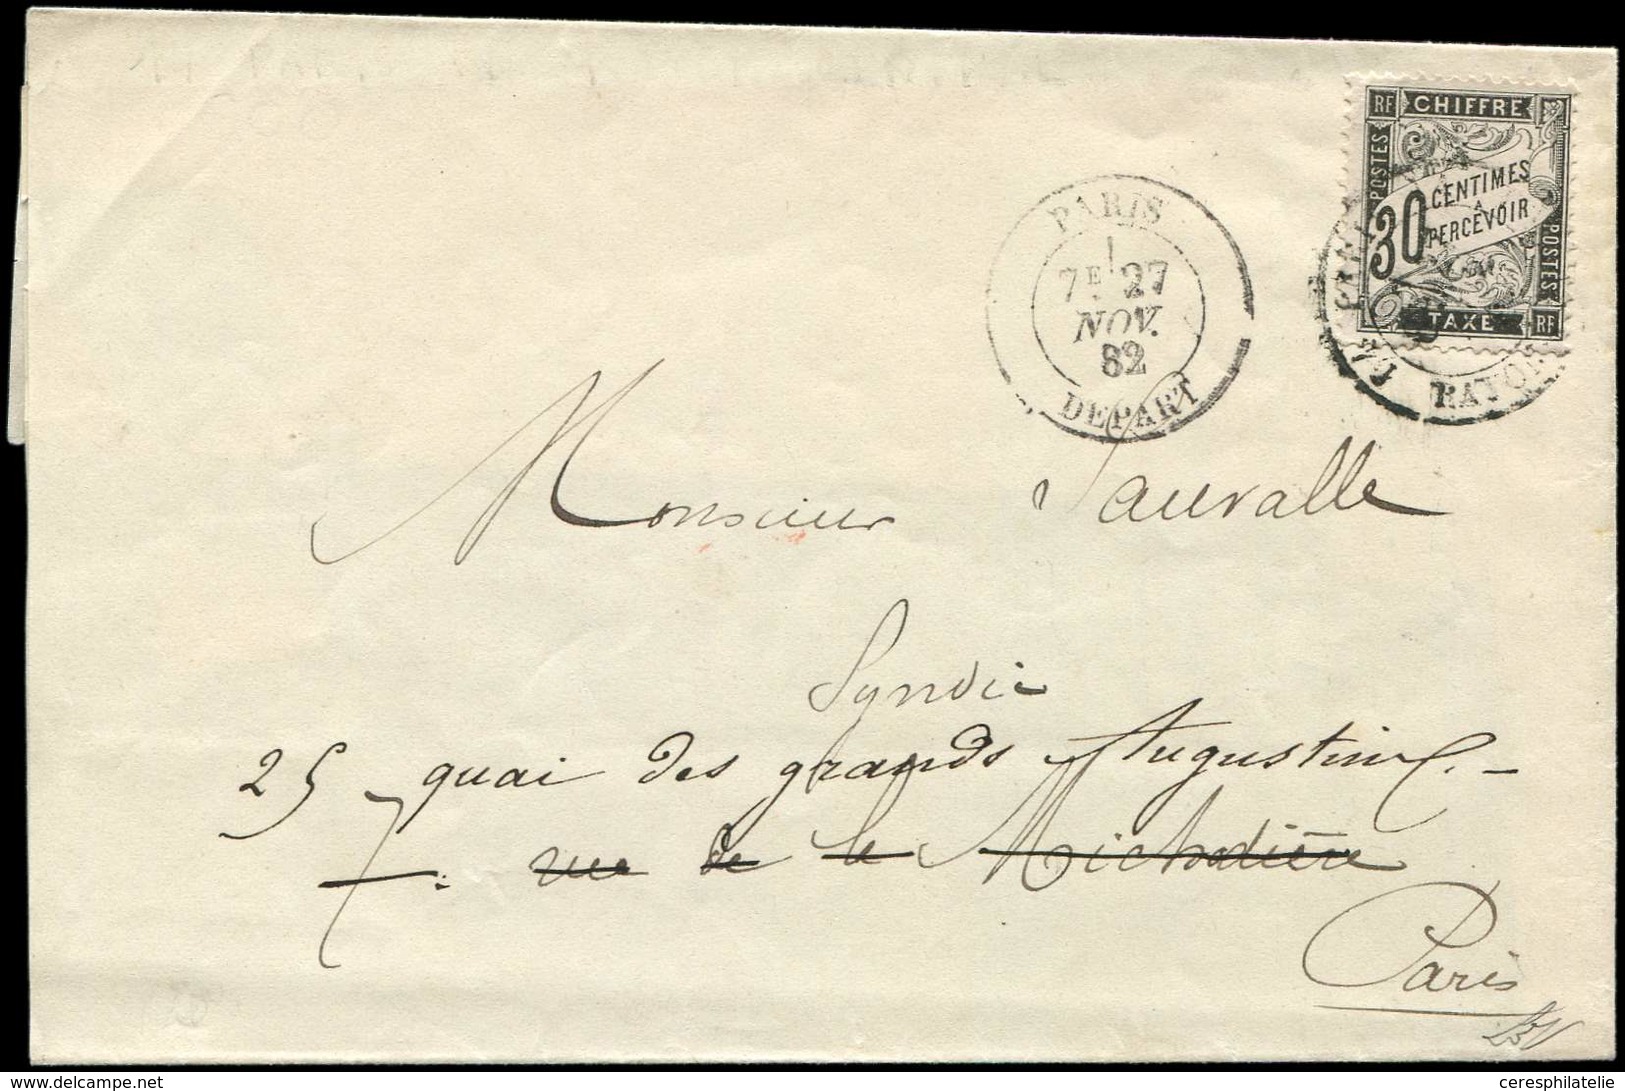 RF CHIFFRE
POSTES
30 CENTIMES
A
PERCEVOIR
POSTES
TAXE RF
PARIS
7E 27
NOV.
82
DEPART
Monsieur Sauvalle
Syndic
25 quai des grands Augustins.-
7. rue de la Michodière
Paris
© delcampe.net
ceresphilatelie